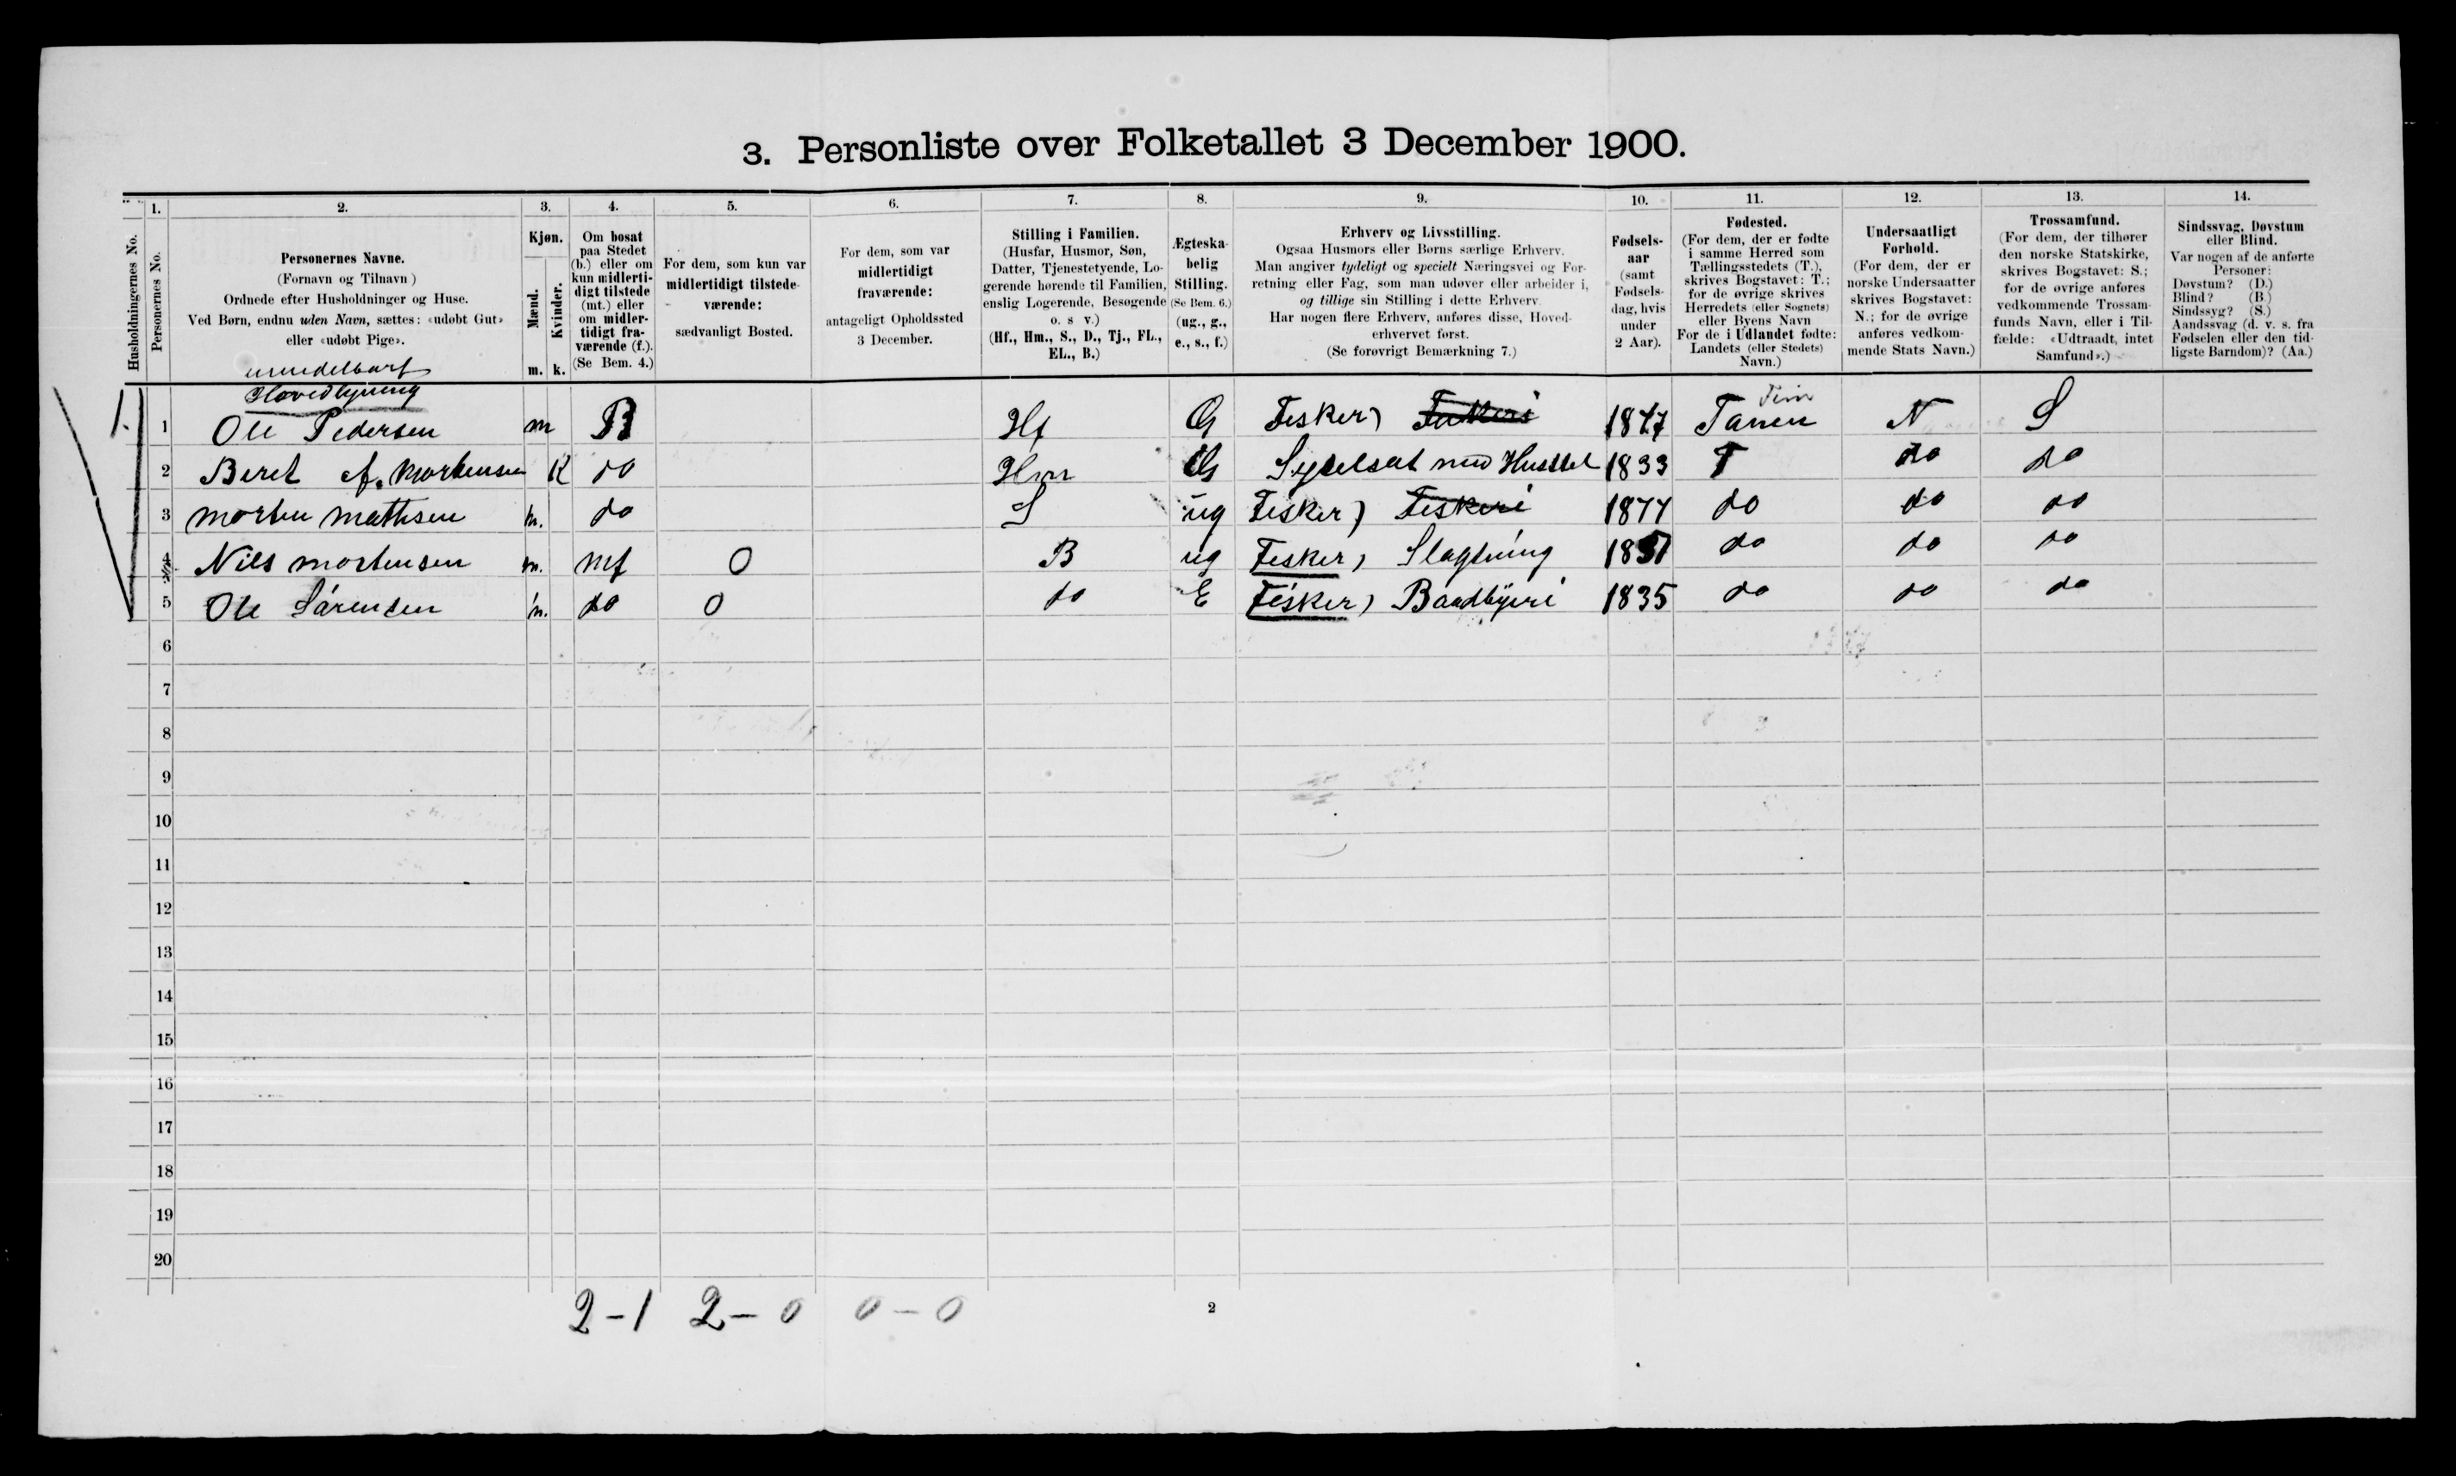 3. Personliste over Folketallet 3 December 1900.
Husholdningernes No.
1.
Personernes No.
2.
Personernes Navne.
(Fornavn og Tilnavn)
Ordnede efter Husholdninger og Huse.
Ved Børn, endnu uden Navn, sættes: «udøbt Gut»
eller «udøbt Pige».
3.
Kjøn.
Mænd.
Kvinder.
m. k.
4.
Om bosat
paa Stedet
(b.) eller om
kun midlerti-
digt tilstede
(mt.) eller
om midler-
tidigt fra-
værende (f.).
(Se Bem. 4.)
5.
For dem, som kun var
midlertidigt tilstede-
værende:
sædvanligt Bosted.
6.
For dem, som var
midlertidigt
fraværende:
antageligt Opholdssted
3 December.
7.
Stilling i Familien.
(Husfar, Husmor, Søn,
Datter, Tjenestetyende, Lo-
gerende hørende til Familien,
enslig Logerende, Besøgende
o. s v.)
(Hf., Hm., S., D., Tj., FL.,
EL., B.)
8.
Ægteska-
belig
Stilling.
(Se Bem. 6.)
(ug., g.,
e., s., f.)
9.
Erhverv og Livsstilling.
Ogsaa Husmors eller Børns særlige Erhverv.
Man angiver tydeligt og specielt Næringsvei og For-
retning eller Fag, som man udøver eller arbeider i,
og tillige sin Stilling i dette Erhverv.
Har nogen flere Erhverv, anføres disse, Hoved-
erhvervet først.
(Se forøvrigt Bemærkning 7.)
10.
Fødsels-
aar
(samt
Fødsels-
dag, hvis
under
2 Aar).
11.
Fødested.
(For dem, der er fødte
i samme Herred som
Tællingsstedets (T.),
skrives Bogstavet: T.;
for de øvrige skrives
Herredets (eller Sognets)
eller Byens Navn
For de i Udlandet fødte:
Landets (eller Stedets)
Navn.)
12.
Undersaatligt
Forhold.
(For dem, der er
norske Undersaatter
skrives Bogstavet:
N.; for de øvrige
anføres vedkom-
mende Stats Navn.)
13.
Trossamfund.
(For dem, der tilhører
den norske Statskirke,
skrives Bogstavet: S.;
for de øvrige anføres
vedkommende Trossam-
funds Navn, eller i Til-
fælde: «Udtraadt, intet
Samfund».)
14.
Sindssvag, Døvstum
eller Blind.
Var nogen af de anførte
Personer:
Døvstum? (D.)
Blind? (B.)
Sindssyg? (S.)
Aandssvag (d. v. s. fra
Fødselen eller den tid-
ligste Barndom)? (Aa.)
Hovedbygning
1. 1 Ole Pedersen m B Hf G Fisker, Fiskeri 1847 Tanen N S
2 Beret Mortensen K do Hm G Husstel 1833 T do do
3 morten mathisen m. do S ug Fisker, Fiskeri 1877 do do do
4 Nils mortensen m. mf O B ug Fisker, Slagtning do do do
5 Ole Sørensen m. do O do E Fisker, Baadbyeri 1835 do do do
6
7
8
9
10
11
12
13
14
15
16
17
18
19
20
2-1 2-0 0-0
2